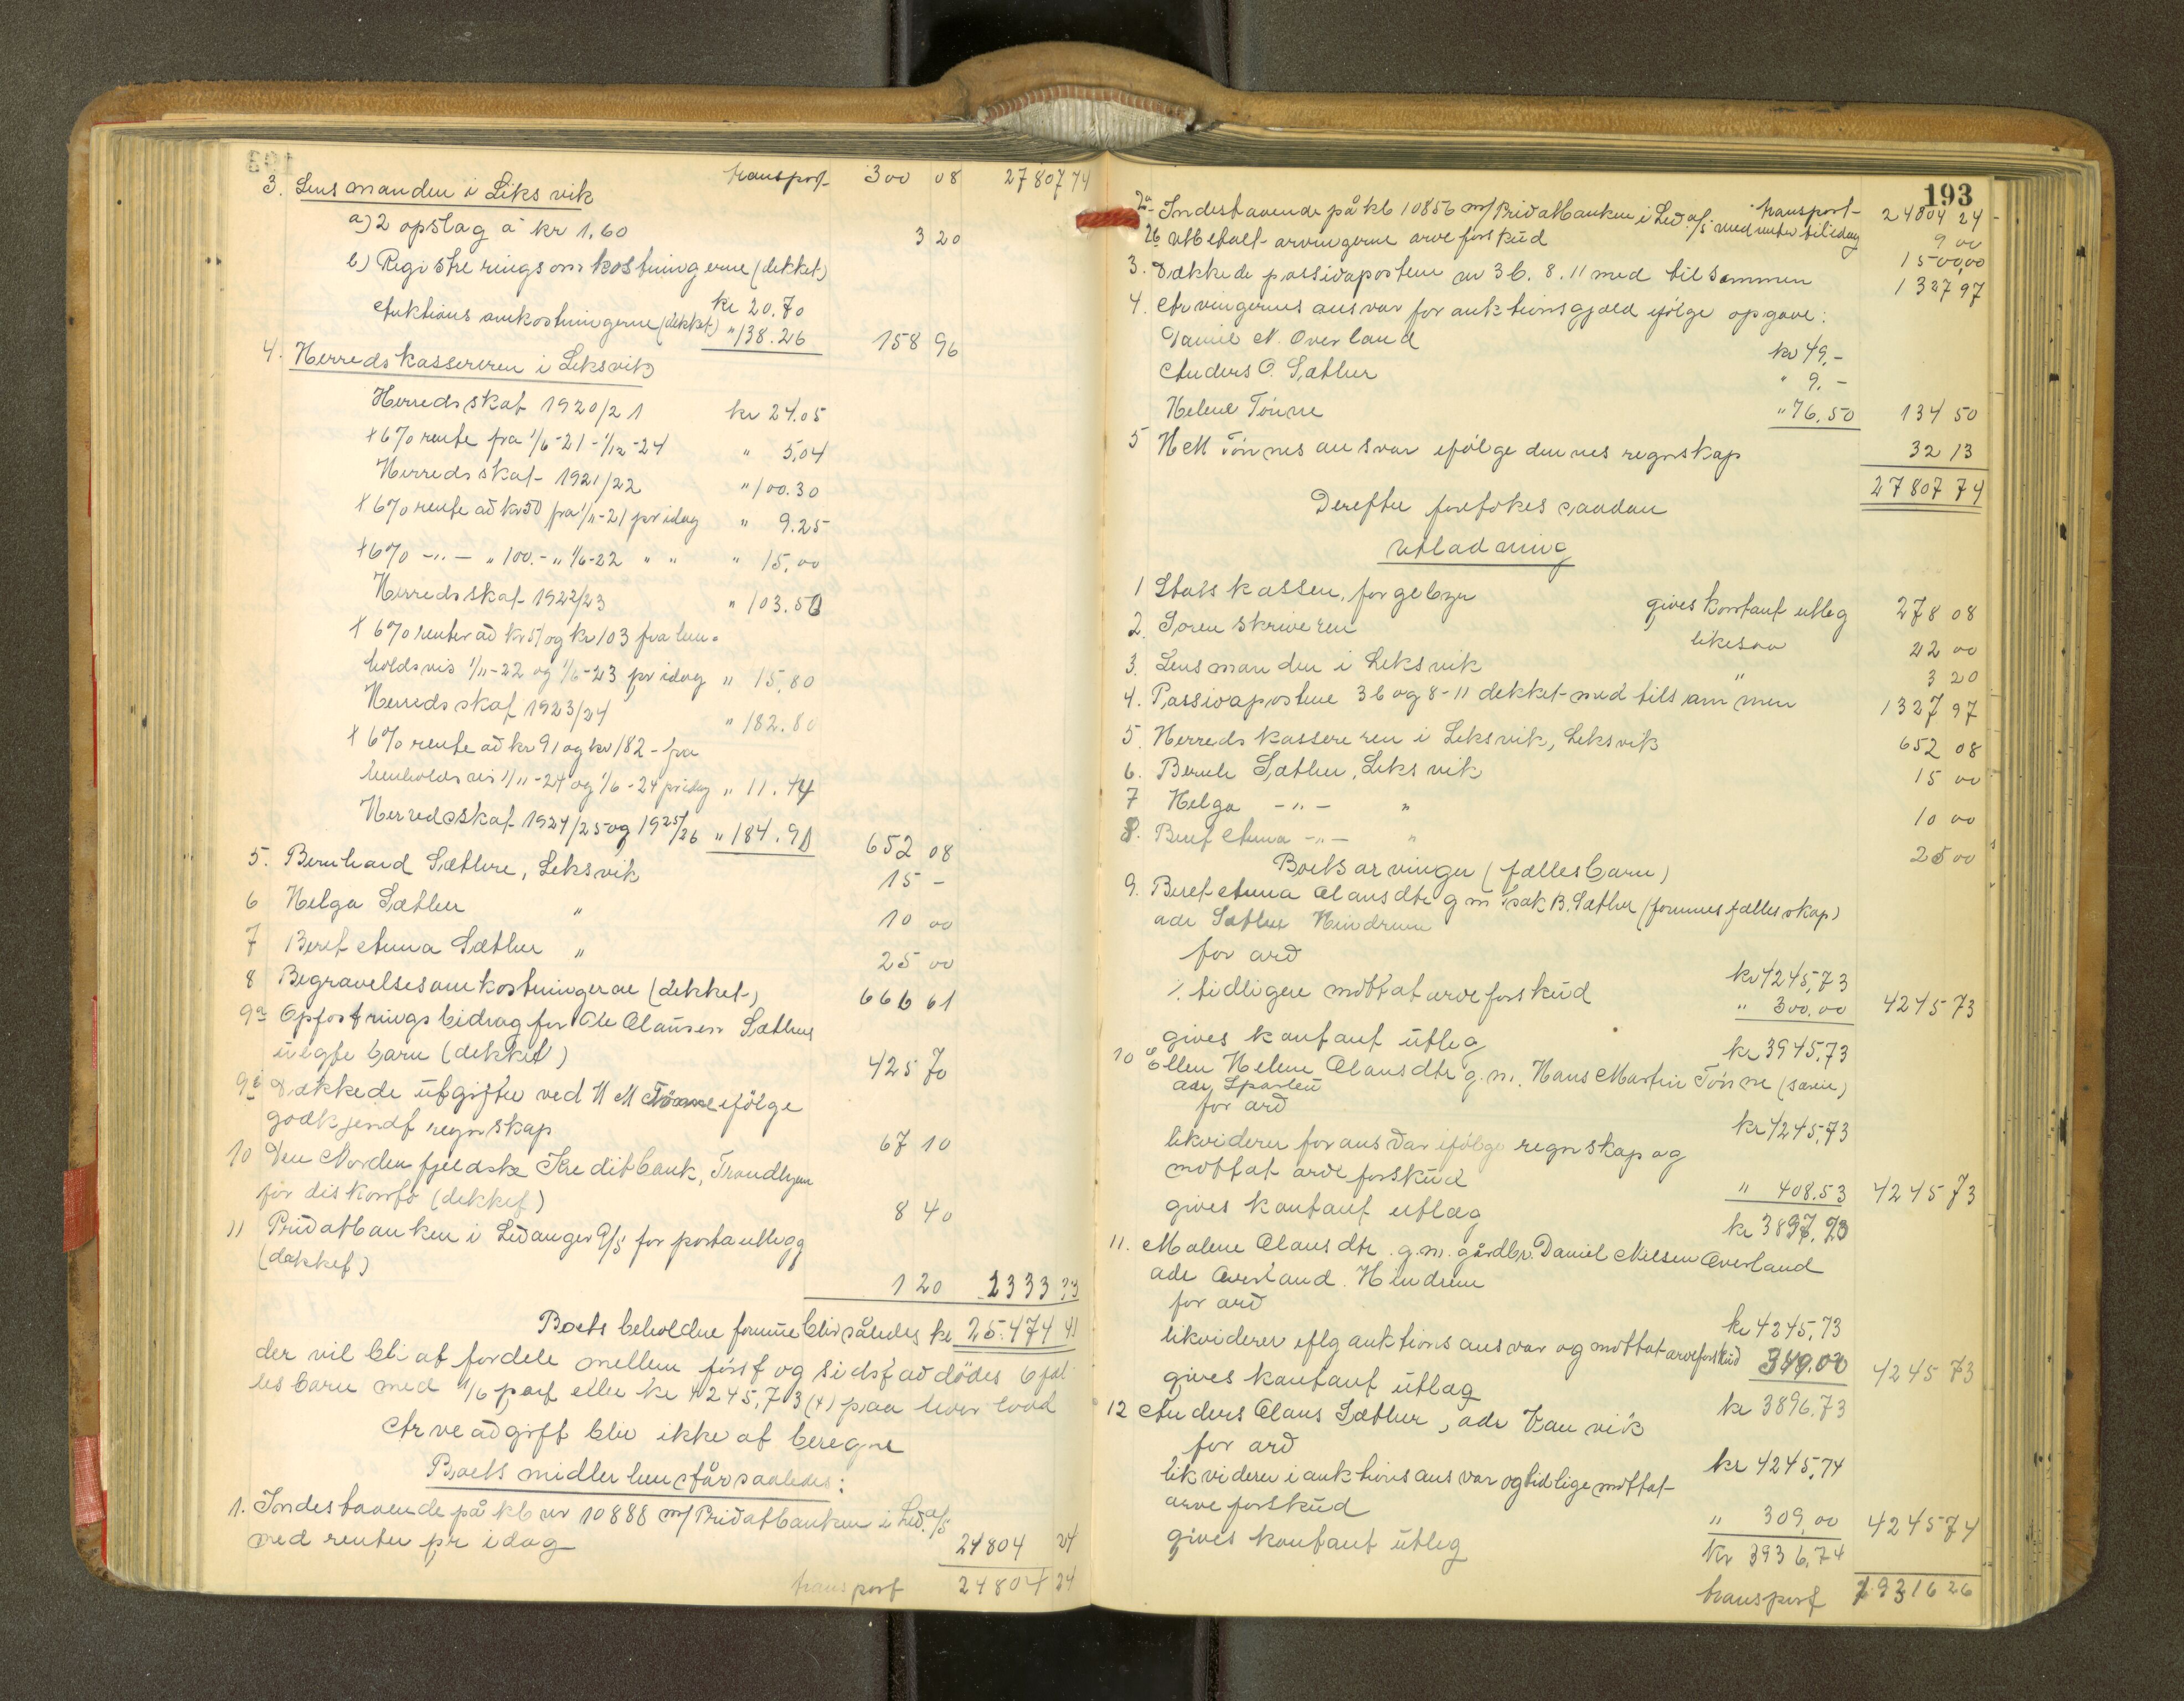 transport 300 08 27807 74
3. Lensmanden i Leksvik
a) 2 opslag a kr 1.60 3 20
b) Registreringsomkostningerne (dekket)
kr 20.70
Auktions omkostningerne (dekket) " 138.26 158 96
4. Herredskassereren i Leksvik
Herredsskat 1920/21 kr 24.05
+ 6% rente fra 1/6-21 - 1/12-24 " 5,04
Herredsskat 1921/22 " 100.30
+ 6% rente av kr 50 fra 1/11-21 pr idag " 9.25
+ 6% -"- " 100.- " 1/6-22 " " " 15,00
Herredsskat 1922/23 " 103.50
+ 6% renter av kr 51 og kr 103 fra hen-
holdsvis 1/11-22 og 1/6-23 pr idag " 15,80
Herredsskat 1923/24 " 182.80
+ 6% rente av kr 91 og kr 182 - fra
henholdsvis 1/11-24 og 1/6-24 pr idag " 11.44
Herredsskat 1924/25 og 1925/26 " 184.90 652 08
5. Bernhard Sæthre, Leksvik 15 -
6 Helga Sæther " 10 00
7 Beret Anna Sæther " 25 00
8 Begravelsesomkostningerne (dekket) 666 61
9a Opfostringsbidrag for Ole Clausen Sæthers
uegte barn (dekket) 425 70
9b Dækkede utgifter ved H M Tönne ifölge
godkjendt regnskap 67 10
10 Den Nordenfjeldske Kreditbank, Trondhjem
for diskonto (dekket) 8 40
11 Privatbanken i Levanger A/S for portoutlegg
(dekket) 1 20 2333 33
Boets beholdne formue blir således kr 25.474 41
der vil bli at fordele mellem först og sidst avdödes 6 fæl-
lesbarn med 1/6 part eller kr 4245,73 (4) paa hver lodd
Arveavgift blir ikke at beregne
Boets midler henstår saaledes:
1. Indestaaende på kb nr 10888 m/ Privatbanken i Lev. A/S
med renter pr idag 24804 24
transport 24804 24
193
transport 24804 24
2a Indestaaende på kb 10856 m/ Privatbanken i Lev. A/S med renter til idag 9 00
2b utbetalt arvingerne arveforskud 1500,00
3. Dækkede passivaposter nr 3b. 8. 11 med tilsammen 1327 97
4. Arvingernes ansvar for auktionsgjæld ifölge opgave:
Daniel N. Overland kr 49,-
Anders O. Sæther " 9.-
Helene Tönne " 76,50 134 50
5 H M Tönnes ansvar ifölge dennes regnskap 32 13
27807 74
Derefter foretokes saadan
utlodning
1 Statskassen, for gebyr gives kontant utleg 278 08
2. Sorenskriveren likesaa 22 00
3. Lensmanden i Leksvik " 3 20
4. Passivapostene 3b og 8-11 dekket med tilsammen 1327 97
5. Herredskassereren i Leksvik, Leksvik 652 08
6. Bernh Sæther, Leksvik 15 00
7 Helga -"- " 10 00
8. Beret Anna -"- " 25 00
Boets arvinger (fællesbarn)
9. Beret Anna Clausdtr g m Isak B. Sæther (formuesfællesskap)
adr Sæther Hindrum
for arv kr 4245,73
÷ tidligere mottat arveforskud " 300.00 4245 73
gives kontant utleg kr 3945,73
10 Ellen Helene Clausdtr g. m. Hans Martin Tönne (særeie)
adr
for arv kr 4245,73
likviderer for ansvar ifölge regnskap og
mottat arveforskud " 408.53 4245 73
gives kontant utlæg kr 3837.20
11. Malene Clausdtr. g.m. gårdbr. Daniel Nilsen Overland
adr Overland. Hindrem
for arv kr 4245,73
likviderer eflg auktionsansvar og mottat arveforskud 349.00 4245 73
gives kontant utlæg kr 3896.73
12 Anders Claus Sæther, adr Vanvik
for arv kr 4245,74
likviderer i auktionsansvar og tidlige mottat
arveforskud " 309,00 4245 74
gives kontant utleg kr 3936,74
transport 19316 26